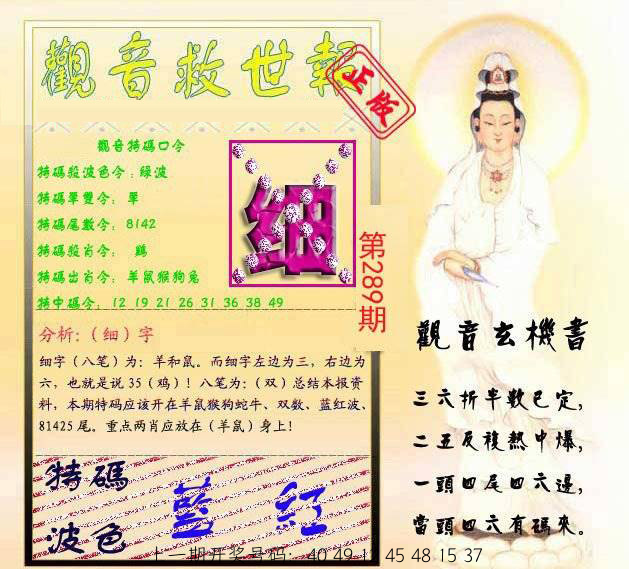 觀音救世報
正版
觀音特碼口令
特碼殺波色令：绿波
特碼單雙令： 單
特碼尾數令： 8142
特碼殺肖令： 鷄
特碼出肖令： 羊鼠猴狗兔
特中碼令： 12 19 21 26 31 36 38 49
细
第289期
分析:（细）字
细字（八笔）为：羊和鼠。而细字左边为三，右边为
六，也就是说 35（鸡）！八笔为：（双）总结本报资
料，本期特码应该开在羊鼠猴狗蛇牛、双数、蓝红波、
81425 尾。重点两肖应放在（羊鼠）身上！
特碼
波色
藍 紅
觀音玄機書
三六折半數已定，
二五反複熱中爆，
一頭四尾四六邊，
當頭四六有碼來。
上一期开奖号码： 40 49 45 48 15 37